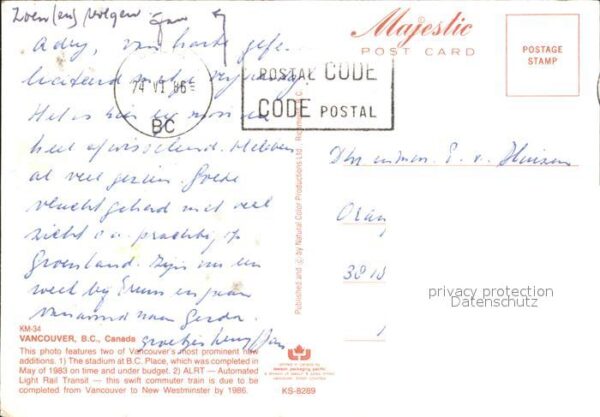 Zoen(en) volgen
Majestic
POST CARD
POSTAGE
STAMP
POSTAL CODE
CODE POSTAL
VI 86
BC
Ady, van harte gefe-
liciteerd met je verjaardag
Het is hier erg mooi en
heel afwisselend. Hebben
al veel gezien. Goede
vlucht gehad met veel
zicht o.a. prachtig op
Groenland. Zijn nu een
week bij en gaan
vanavond naar Gerda.
groetjes Jan
E. v. Huizen
KM-34
VANCOUVER, B.C., Canada
This photo features two of Vancouver's most prominent new
additions. 1) The stadium at B.C. Place, which was completed in
May of 1983 on time and under budget. 2) ALRT — Automated
Light Rail Transit — this swift commuter train is due to be
completed from Vancouver to New Westminster by 1986.
Produced and © by Natural Color Productions Ltd., B.C.
KS-8289
privacy protection
Datenschutz